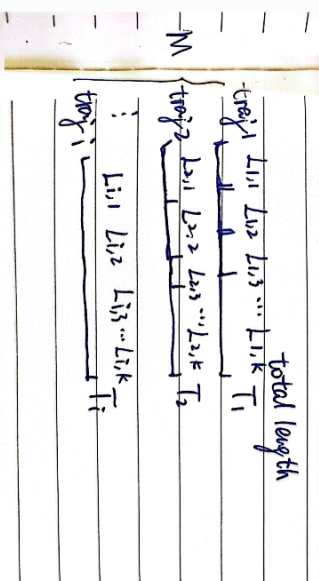 total length
traj 1 L1,1 L1,2 L1,3 ... L1,k T1
M traj 2 L2,1 L2,2 L2,3 ... L2,k T2
⋮
traj i Li,1 Li,2 Li,3 ... Li,k Ti